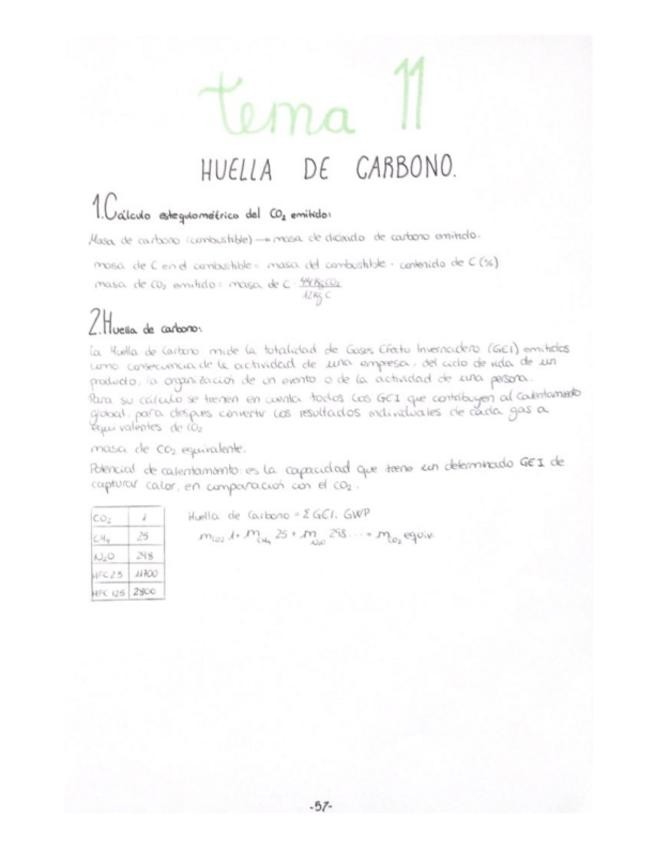 tema 11
HUELLA DE CARBONO.
1. Cálculo estequiométrico del CO₂ emitido:
Masa de carbono (combustible) → masa de dióxido de carbono emitido.
masa de C en el combustible = masa del combustible · contenido de C (%)
masa de CO₂ emitido = masa de C · 44 Kg CO₂
12 Kg C
2. Huella de carbono:
La Huella de Carbono mide la totalidad de Gases Efecto Invernadero (GEI) emitidos
como consecuencia de la actividad de una empresa, del ciclo de vida de un
producto, la organización de un evento o de la actividad de una persona.
Para su cálculo se tienen en cuenta todos los GEI que contribuyen al calentamiento
global, para después convertir los resultados individuales de cada gas a
equivalentes de CO₂
masa de CO₂ equivalente.
Potencial de calentamiento: es la capacidad que tiene un determinado GEI de
capturar calor, en comparación con el CO₂.
Huella de Carbono = Σ GEI. GWP
CO₂ 1
CH₄ 25
N₂O 298
HFC 23 11700
HFC 125 2800
-57-